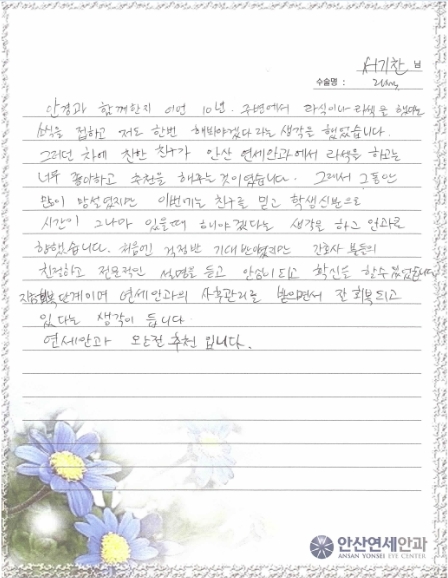 서기찬 님
수술명 : 라식
안경과 함께한지 어언 10년. 주변에서 라식이나 라섹을 했다는
소식을 접하고 저도 한번 해봐야겠다 라는 생각을 했었습니다.
그러던 차에 친한 친구가 안산 연세안과에서 라섹을 하고는
너무 좋아하고 추천을 해주는 것이였습니다. 그래서 그동안
많이 망설였지만 이번에는 친구를 믿고 학생신분으로
시간이 그나마 있을때 해야겠다는 생각을 하고 안과로
향했습니다. 처음엔 걱정반 기대반이였지만 간호사 분들의
친절하고 전문적인 설명을 듣고 안심이 되고 확신을 할수 있었습니다.
지금은 회복 단계이며 연세안과의 사후관리를 받으면서 잘 회복되고
있다는 생각이 듭니다.
연세안과 완전 추천 입니다.
안산연세안과
ANSAN YONSEI EYE CENTER